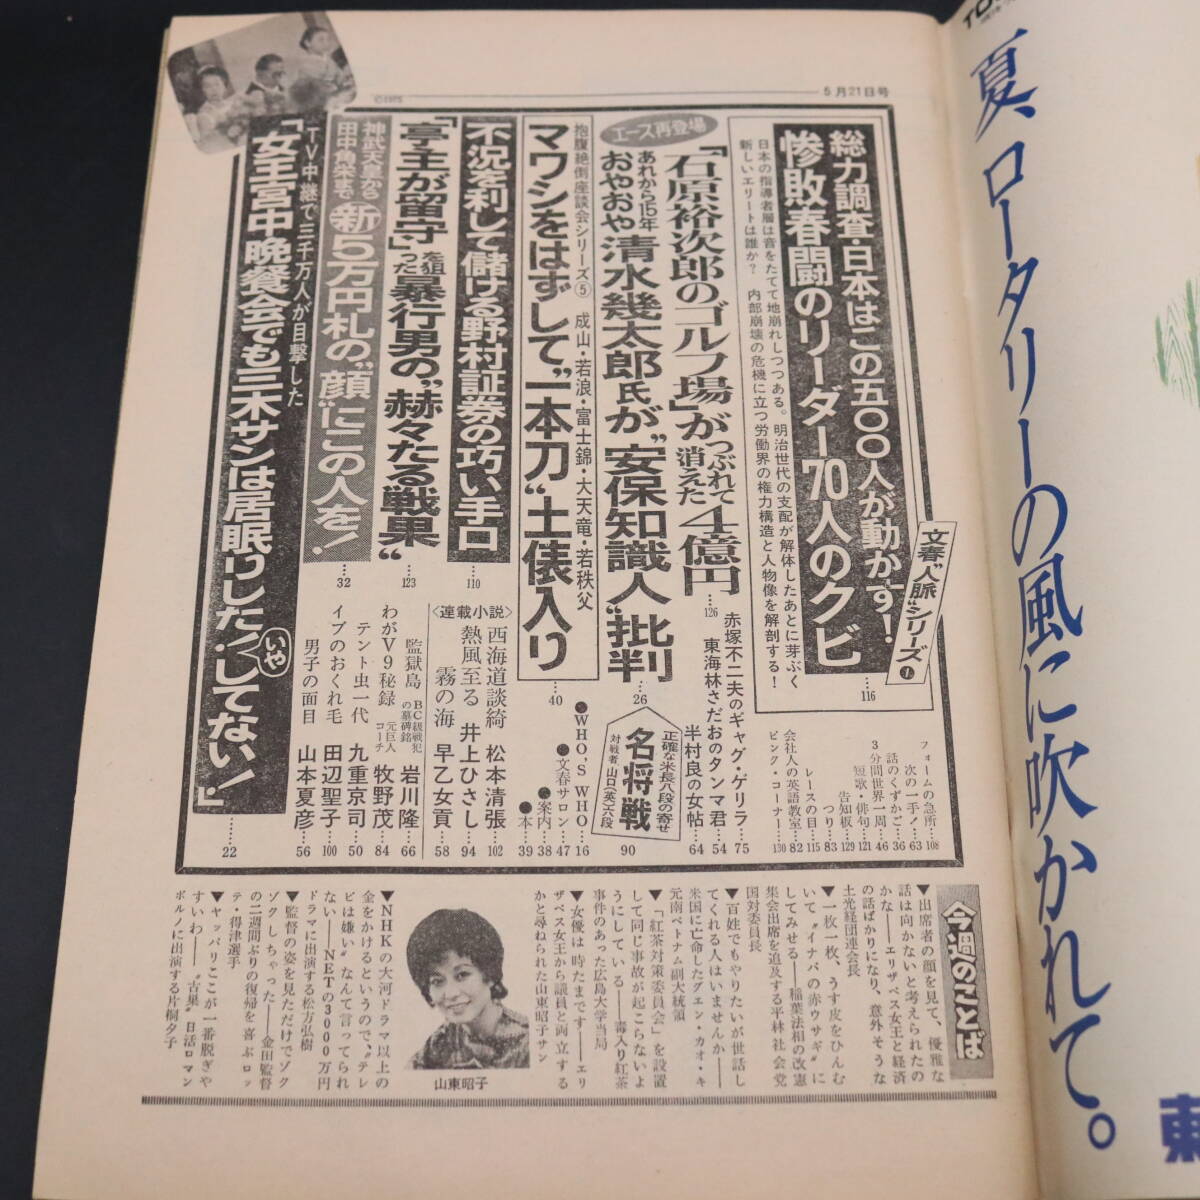 5月21日号
©1975
文春“人脈”シリーズ①
総力調査・日本はこの五〇〇人が動かす!
惨敗春闘のリーダー70人のクビ
…116
日本の指導者層は音をたてて地崩れしつつある。明治世代の支配が解体したあとに芽ぶく
新しいエリートは誰か? 内部崩壊の危機に立つ労働界の権力構造と人物像を解剖する!
エース再登場
「石原裕次郎のゴルフ場」がつぶれて消えた4億円
…126
あれから15年
おやおや清水幾太郎氏が“安保知識人”批判
…26
抱腹絶倒座談会シリーズ⑤ 成山・若浪・富士錦・大天竜・若秩父
マワシをはずして“一本刀”土俵入り
…40
不況を利して儲ける野村証券の巧い手口
…110
「亭主が留守」を狙った暴行男の“赫々たる戦果”
…123
神武天皇から
田中角栄まで
新5万円札の“顔”にこの人を!
…32
TV中継で三千万人が目撃した
「女王宮中晩餐会でも三木サンは居眠りした!いやしてない!」
……22
フォームの急所…108
次の一手!…63
話のくずかご…36
3分間世界一周…46
短歌・俳句…121
告知板…129
つり…83
レースの目…115
会社人の英語教室…82
ピンク・コーナー…130
赤塚不二夫のギャグ・ゲリラ…75
東海林さだおのタンマ君…54
半村良の女帖…64
正確な米長八段の寄せ
名将戦
対戦者 山口(英)六段
90
●WHO,S WHO…16
●文春サロン…47
●案内…38
●本…39
〈連載小説〉
西海道談綺 松本清張…102
熱風至る 井上ひさし…94
霧の海 早乙女貢…58
監獄島 BC級戦犯の墓碑銘 岩川隆…66
わがV9秘録 元巨人コーチ 牧野茂…84
テント虫一代 九重京司…50
イブのおくれ毛 田辺聖子…100
男子の面目 山本夏彦…56
今週のことば
▼出席者の顔を見て、優雅な
話は向かないと考えられたの
かな——エリザベス女王と経済
の話ばかりになり、意外そうな
土光経団連会長
▼一枚一枚、うす皮をひんむ
いて、“イナバの赤ウサギ”に
してみせる——稲葉法相の改憲
集会出席を追及する平林社会党
国対委員長
▼百姓でもやりたいが世話し
てくれる人はいませんか——
米国に亡命したグエン・カオ・キ
元南ベトナム副大統領
▼「紅茶対策委員会」を設置
して同じ事故が起こらないよ
うにしている——毒入り紅茶
事件のあった広島大学当局
▼女優は時たまです——エリ
ザベス女王から議員と両立する
かと尋ねられた山東昭子サン
山東昭子
▼NHKの大河ドラマ以上の
金をかけるというので、“テレ
ビは嫌い”なんて言ってられ
ない——NETの3000万円
ドラマに出演する松方弘樹
▼監督の姿を見ただけでゾク
ゾクしちゃった——金田監督
の二週間ぶりの復帰を喜ぶロッ
テ・得津選手
▼ヤッパリここが一番脱ぎや
すいわ——“古巣”日活ロマン
ポルノに出演する片桐夕子
夏、ロータリーの風に吹かれて。
東